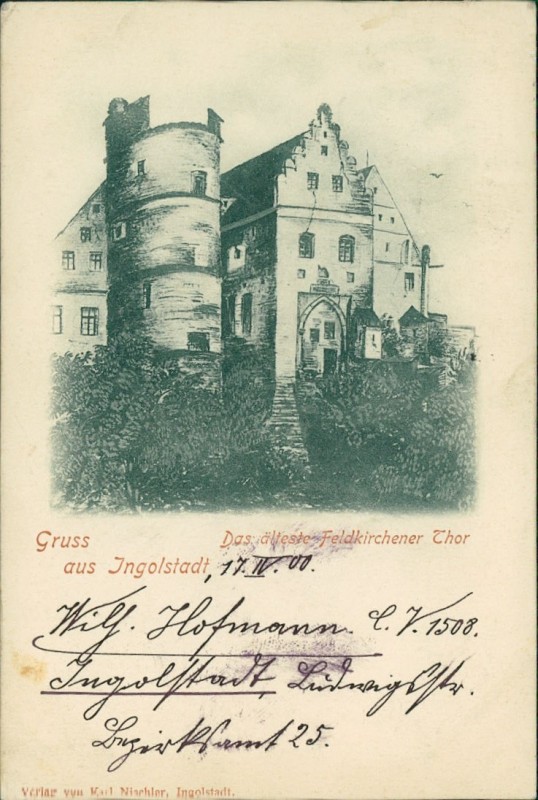 Gruss Das älteste Feldkirchener Thor
aus Ingolstadt, 17.IV.00.
Wilh. Hofmann. C. V. 1508.
Ingolstadt, Ludwigsstr.
Bezirksamt 25.
Verlag von Karl Nischler, Ingolstadt.